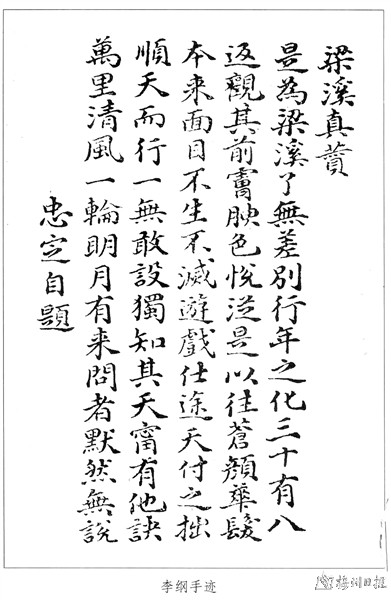 梁溪真贊
是為梁溪了無差別行年之化三十有八
返觀其前膚腴色悅從是以往蒼顏華髮
本来面目不生不滅遊戲仕途天付之拙
順天而行一無敢設獨知其天甯有他訣
萬里清風一輪明月有来問者默然無說
忠定自題
李纲手迹
梅州日报